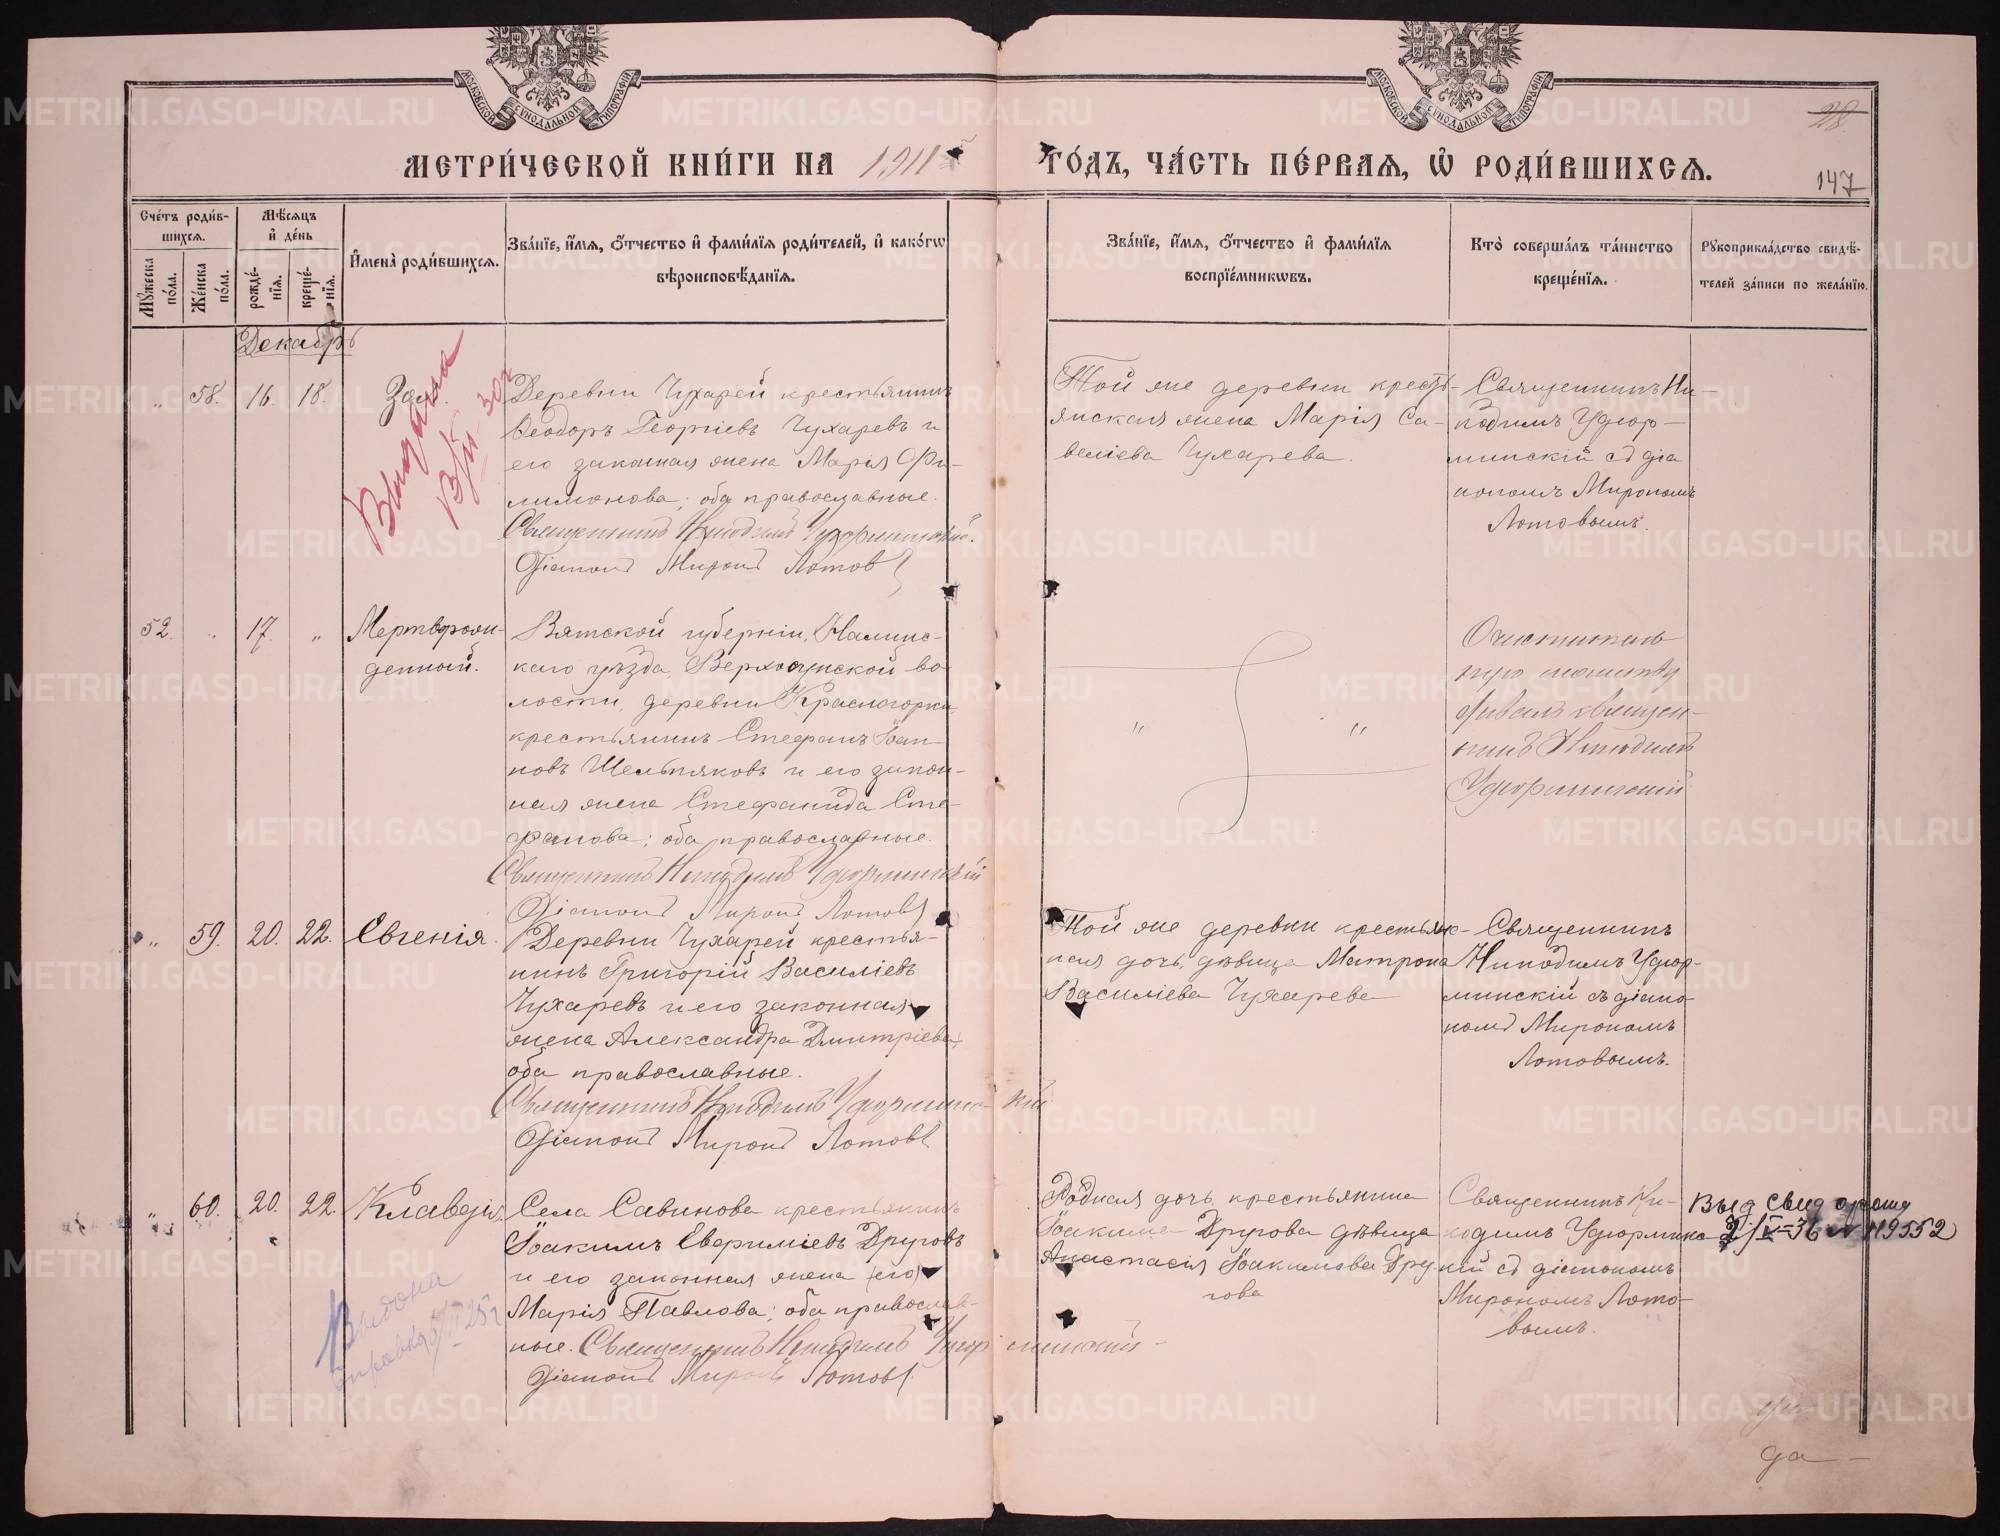 МЕТРИ́ЧЕСКОЙ КНИ́ГИ НА 1911
ГО́ДЪ, ЧА́СТЬ ПЕ́РВАѦ, Ѽ РОДИ́ВШИХСѦ.
28.
147
Сче́тъ роди́в-
шихсѧ.
Мꙋжеска по́ла.
Же́нска по́ла.
Мѣ́сѧцъ
и҆ де́нь
рожде́-
нїѧ.
креще́-
нїѧ.
И҆мена̀ роди́вшихсѧ.
Зва́нїе, и҆́мѧ, ѻ҆́тчество и҆ фами́лїѧ роди́телей, и҆ како́гѡ
вѣроисповѣ́данїѧ.
Зва́нїе, и҆́мѧ, ѻ҆́тчество и҆ фами́лїѧ
воспрїе́мникѡвъ.
Кто̀ соверша́лъ та́инство
креще́нїѧ.
Рꙋкоприкла́дство свидѣ́-
телей за́писи по жела́нїю.
Декабрь
„ 58. 16. 18. Зоя.
Выдана
Деревни Чухарей крестьянинъ
Ѳеодоръ Георгіевъ Чухаревъ и
его законная жена Марія Фи-
лимонова; оба православные.
Священникъ Никодимъ Удюрминскій.
Діаконъ Миронъ Лотовъ
Той же деревни кресть-
янская жена Марія Са-
веліева Чухарева.
Священникъ Ни-
кодимъ Удюр-
минскій съ діа
кономъ Мирономъ
Лотовымъ.
52. „ 17. „ Мертворож-
денный.
Вятской губерніи, Малмыс-
каго уѣзда, во-
лости, деревни Красногорки
крестьянинъ Стефанъ Іоан-
новъ Шельпяковъ и его закон-
ная жена Стефанида Сте-
фанова; оба православные.
Священникъ Никодимъ Удюрминскій
Діаконъ Миронъ Лотовъ
„ „
Очиститель
ную молитву
давалъ священ-
никъ Никодимъ
Удюрминскій
„ 59. 20. 22. Евгенія.
Деревни Чухарей крестья-
нинъ Григорій Василіевъ
Чухаревъ и его законная
жена Александра Дмитріева;
оба православные.
Священникъ Никодимъ Удюрминс- кій
Діаконъ Миронъ Лотовъ
Той же деревни крестьянс-
кая дочь, дѣвица Матрона
Василіева Чухарева
Священникъ
Никодимъ Удюр-
минскій съ діако-
номъ Мирономъ
Лотовымъ.
„ 60. 20. 22. Клавдія.
Села Савинова крестьянинъ
Іоакимъ Евфиміевъ Друговъ
и его законная жена (его)
Марія Павлова; оба православ-
ные. Священникъ Никодимъ Удюрминскій
Діаконъ Миронъ Лотовъ
Родная дочь крестьянина
Іоакима Другова дѣвица
Анастасія Іоакимова Дру
гова
Священникъ Ни-
кодимъ Удюрминс
кій съ діакономъ
Мирономъ Лото-
вымъ.
Выд свид
36 N 119552
Выдона
да —
METRIKI.GASO-URAL.RU